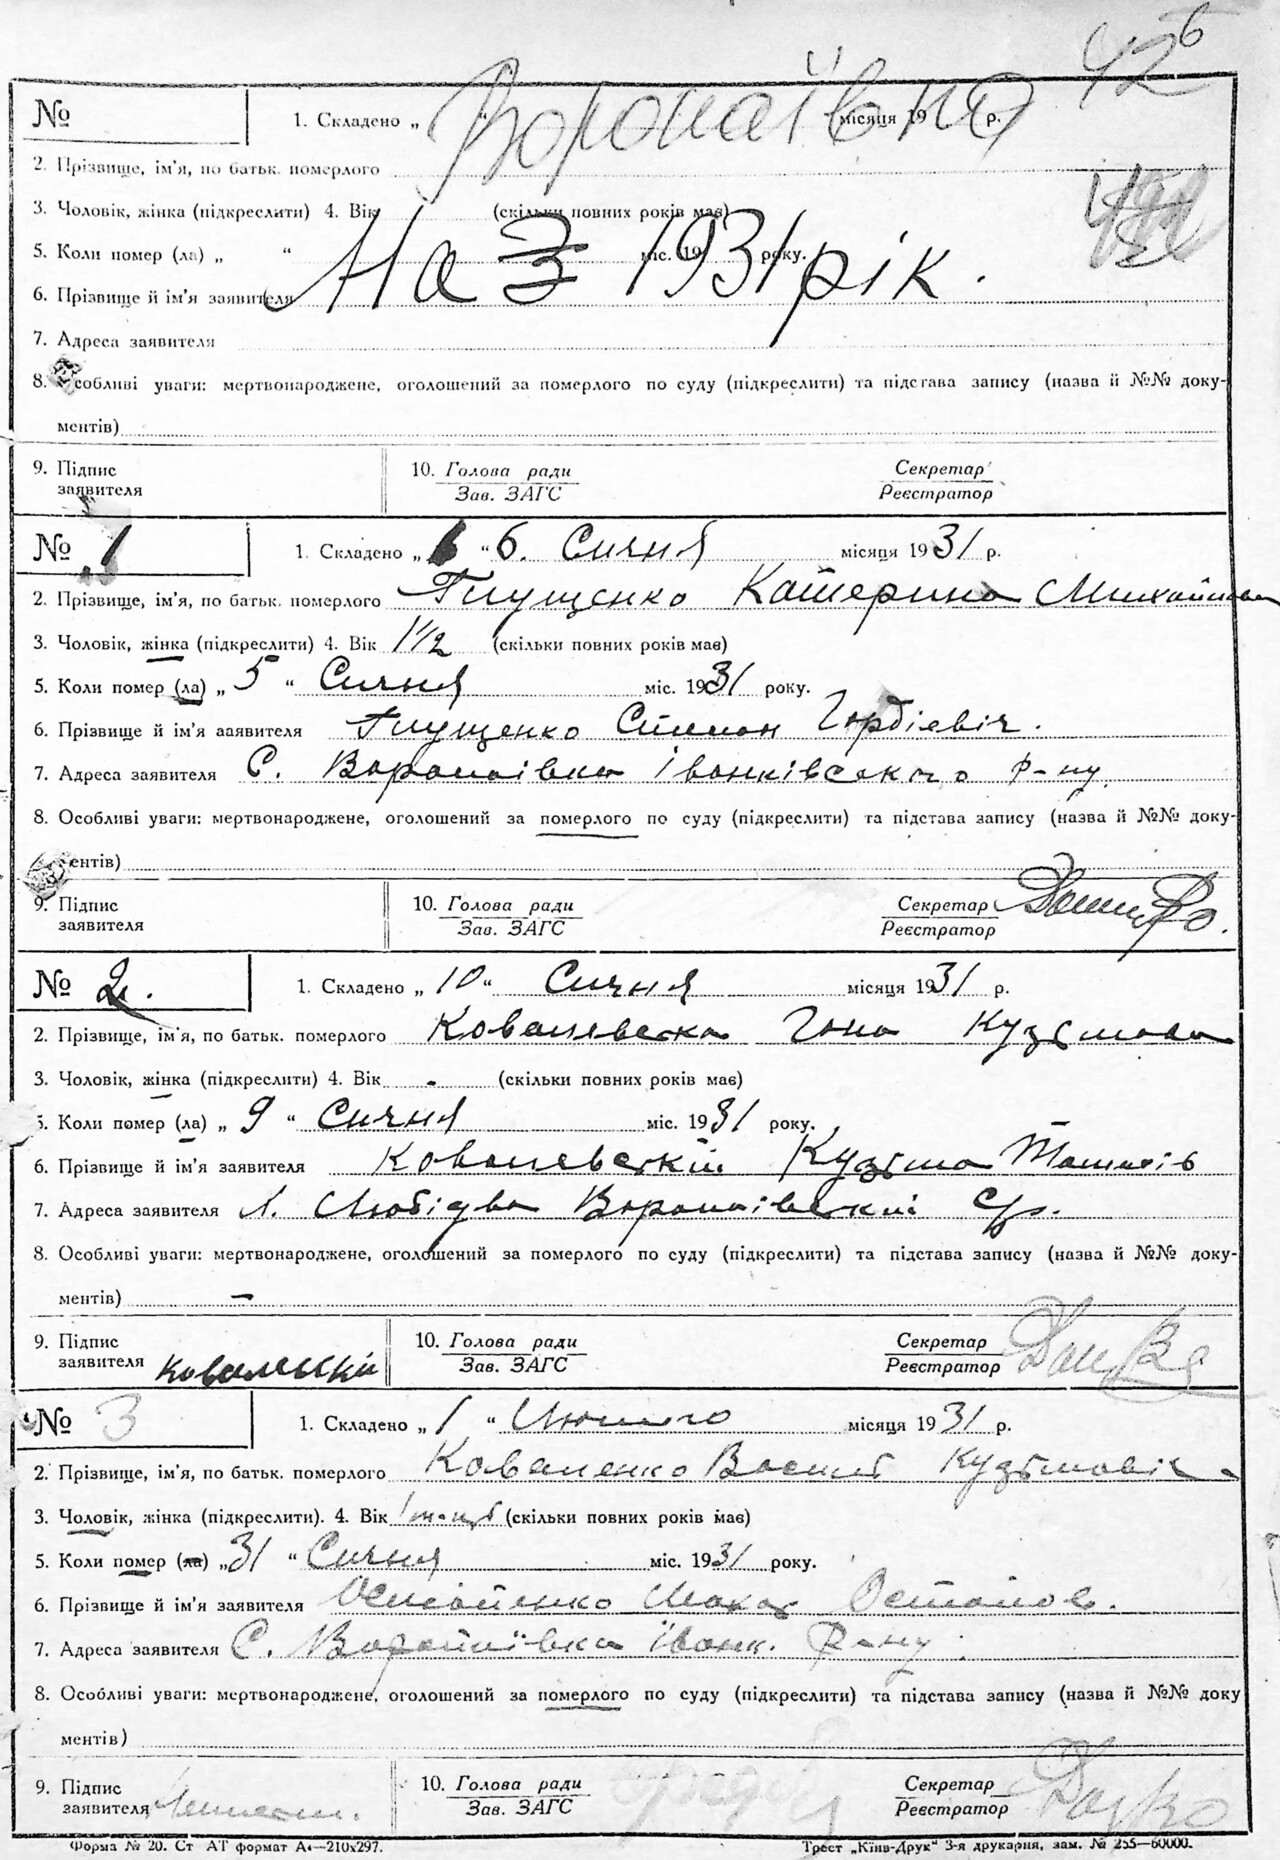 42 б
№
1. Складено „ “ місяця 19 р.
Воропаївка
2. Прізвище, ім'я, по батьк. померлого
3. Чоловік, жінка (підкреслити) 4. Вік (скільки повних років має)
5. Коли помер (ла) „ “ міс. 19 року.
На 1931 рік.
6. Прізвище й ім'я заявителя
7. Адреса заявителя
8. Особливі уваги: мертвонароджене, оголошений за померлого по суду (підкреслити) та підстава запису (назва й №№ доку-
ментів)
9. Підпис заявителя 10. Голова ради Секретар
Зав. ЗАГС Реєстратор
№ 1 1. Складено „ “ 6. Січня місяця 1931 р.
2. Прізвище, ім'я, по батьк. померлого Глущенко Катерина Михайловна
3. Чоловік, жінка (підкреслити) 4. Вік 1 1/2 (скільки повних років має)
5. Коли помер (ла) „ 5 “ Січня міс. 1931 року.
6. Прізвище й ім'я заявителя Глущенко Семион Гордієвіч.
7. Адреса заявителя С. Воропаівка Іванківського р-ну.
8. Особливі уваги: мертвонароджене, оголошений за померлого по суду (підкреслити) та підстава запису (назва й №№ доку-
ментів)
9. Підпис заявителя 10. Голова ради Секретар
Зав. ЗАГС Реєстратор
№ 2. 1. Складено „ 10 “ Січня місяця 1931 р.
2. Прізвище, ім'я, по батьк. померлого Ковалевска Ганна Кузьмовна
3. Чоловік, жінка (підкреслити) 4. Вік - (скільки повних років має)
5. Коли помер (ла) „ 9 “ Січня міс. 1931 року.
6. Прізвище й ім'я заявителя Ковалевскій Кузьма
7. Адреса заявителя Воропаівський с/р.
8. Особливі уваги: мертвонароджене, оголошений за померлого по суду (підкреслити) та підстава запису (назва й №№ доку-
ментів) —
9. Підпис заявителя Ковалський 10. Голова ради Секретар
Зав. ЗАГС Реєстратор
№ 3 1. Складено „ 1 “ Лютого місяця 1931 р.
2. Прізвище, ім'я, по батьк. померлого Коваленко Василь Кузьмовіч
3. Чоловік, жінка (підкреслити). 4. Вік (скільки повних років має)
5. Коли помер (ла) „ 31 “ Січня міс. 1931 року.
6. Прізвище й ім'я заявителя Макар Остапов.
7. Адреса заявителя С. Воропаївка Іванк. Р-ну.
8. Особливі уваги: мертвонароджене, оголошений за померлого по суду (підкреслити) та підстава запису (назва й №№ доку
ментів)
9. Підпис заявителя 10. Голова ради Секретар
Зав. ЗАГС Реєстратор
Форма № 20. Ст АТ формат А4—210х297. Трест „Київ-Друк“ 3-я друкарня, зам. № 255—60000.